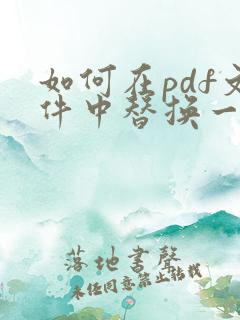 如何在pdf文
件中替换一
落地书声
未经同意禁止转载